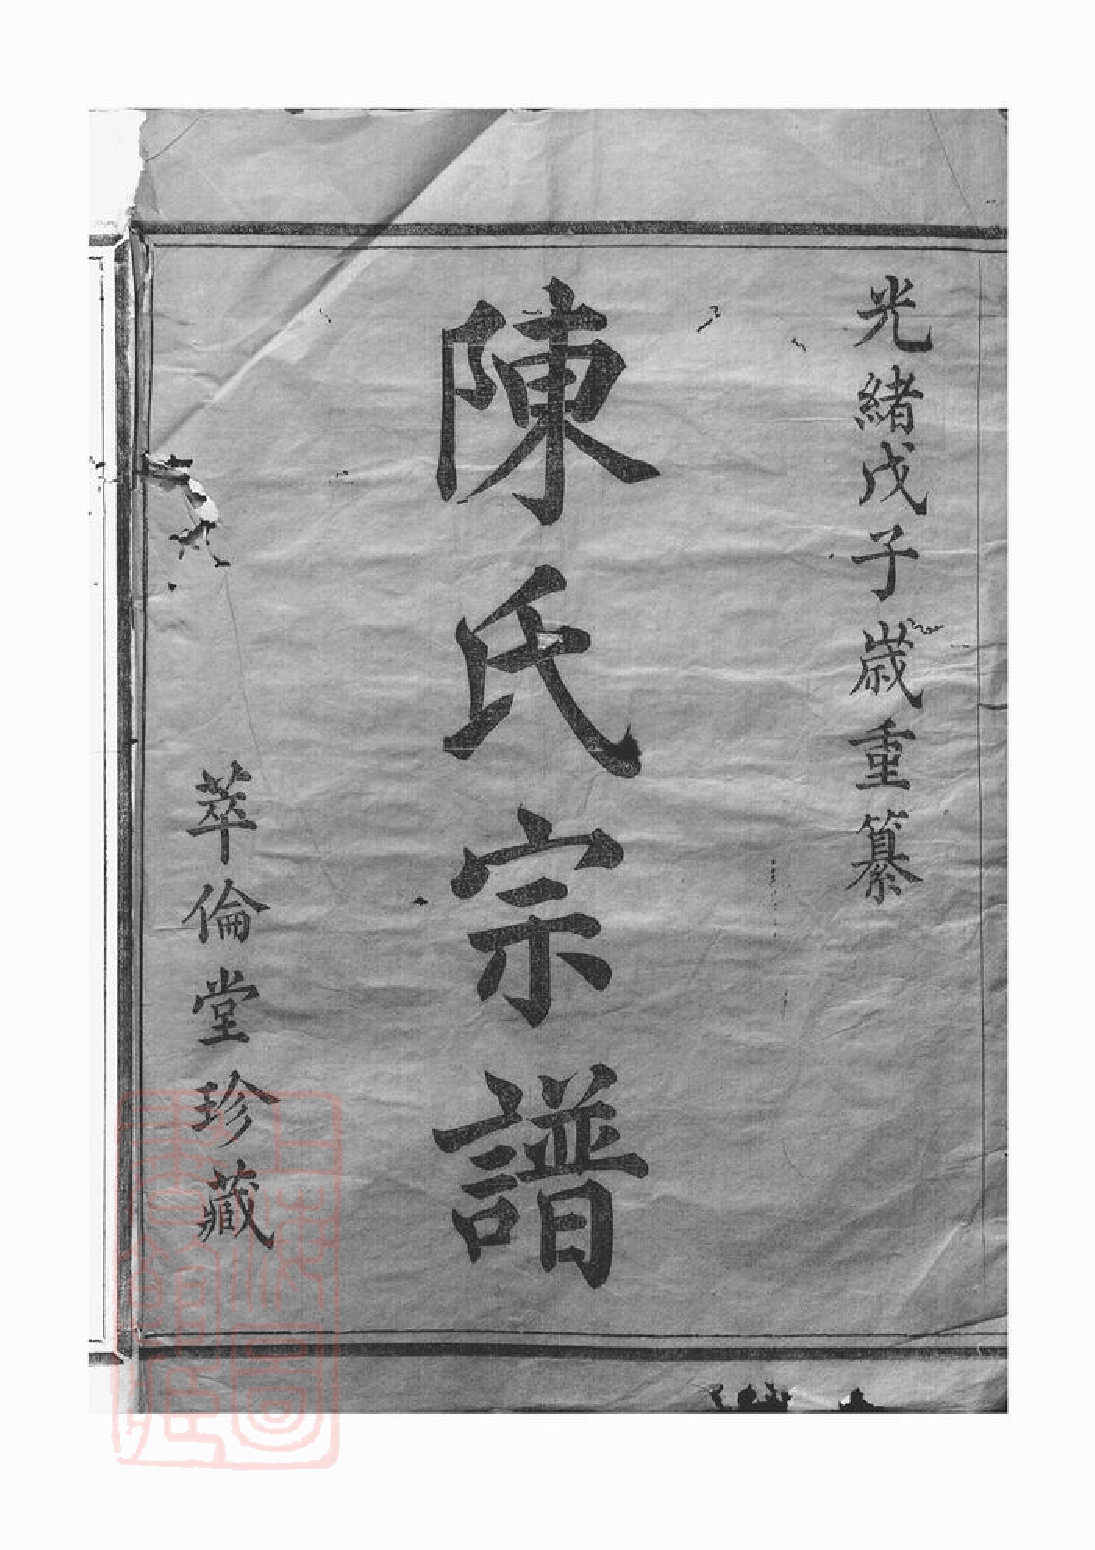 光緒戊子歲重纂
陳氏宗譜
萃倫堂珍藏